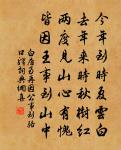 今年到時夏雲白
去年來時秋樹紅
兩度見山心有愧
皆因王事到山中
白居易再因公事到駱
口驛詞典網集